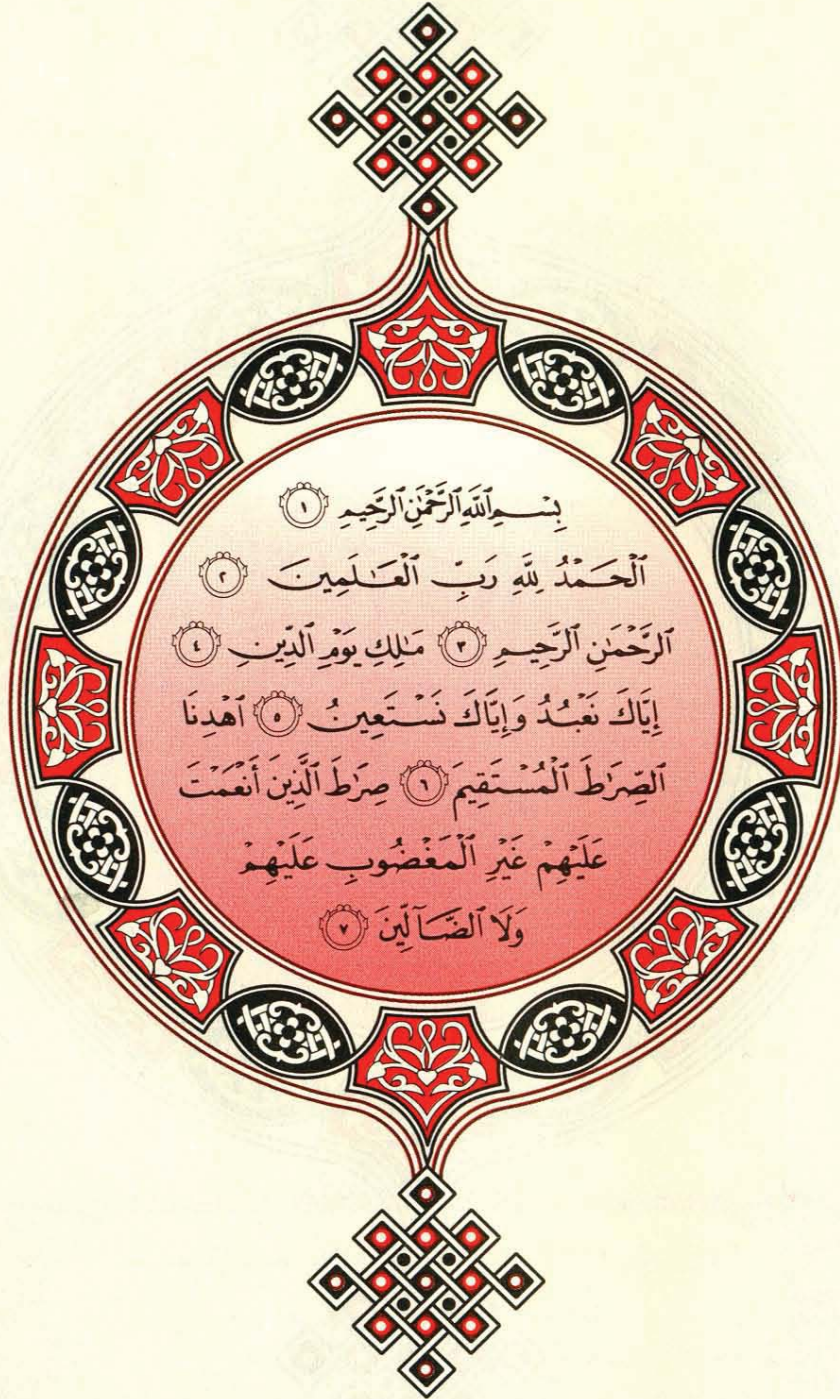 بِسْمِ ٱللَّهِ ٱلرَّحْمَٰنِ ٱلرَّحِيمِ ١
ٱلْحَمْدُ لِلَّهِ رَبِّ ٱلْعَـٰلَمِينَ ٢
ٱلرَّحْمَٰنِ ٱلرَّحِيمِ ٣ مَـٰلِكِ يَوْمِ ٱلدِّينِ ٤
إِيَّاكَ نَعْبُدُ وَإِيَّاكَ نَسْتَعِينُ ٥ ٱهْدِنَا
ٱلصِّرَٰطَ ٱلْمُسْتَقِيمَ ٦ صِرَٰطَ ٱلَّذِينَ أَنْعَمْتَ
عَلَيْهِمْ غَيْرِ ٱلْمَغْضُوبِ عَلَيْهِمْ
وَلَا ٱلضَّآلِّينَ ٧